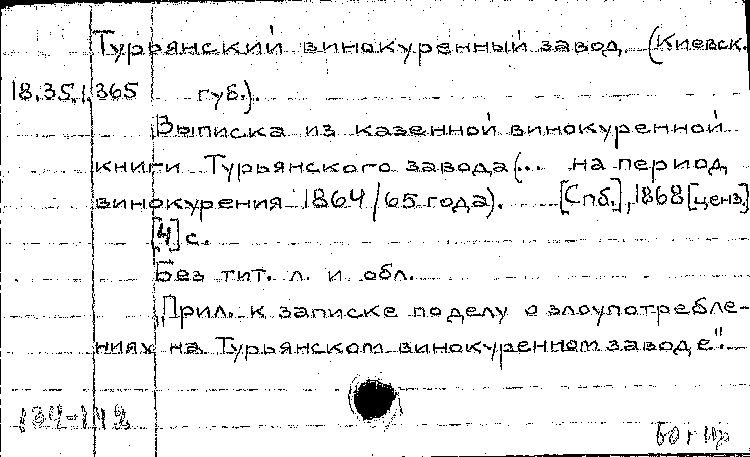 Турьянский винокуренный завод. (Киевск.
18.35.1.365 губ.).
Выписка из казенной винокуренной
книги Турьянского завода (... на период
винокурения 1864/65 года). [Спб.], 1868 [ценз.]
[4] с.
Без тит. л. и обл.
"Прил. к записке по делу о злоупотребле-
ниях на Турьянском винокуренном заводе".